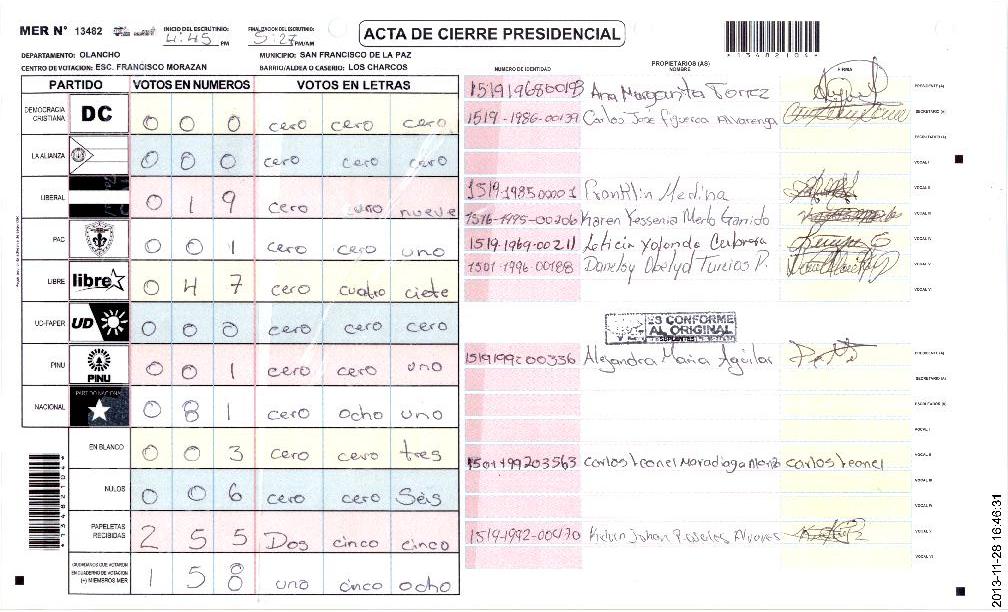 MER N° 13482 INICIO DEL ESCRUTINIO: 4:45 PM FINALIZACION DEL ESCRUTINIO: 5:27 PM/AM
ACTA DE CIERRE PRESIDENCIAL
*13482104*
DEPARTAMENTO: OLANCHO MUNICIPIO: SAN FRANCISCO DE LA PAZ
CENTRO DE VOTACION: ESC. FRANCISCO MORAZAN BARRIO/ALDEA O CASERIO: LOS CHARCOS
PARTIDO VOTOS EN NUMEROS VOTOS EN LETRAS
DEMOCRACIA CRISTIANA DC 0 0 0 cero cero cero
LA ALIANZA 0 0 0 cero cero cero
LIBERAL 0 1 9 cero uno nueve
PAC 0 0 1 cero cero uno
LIBRE libre 0 4 7 cero cuatro ciete
UD-FAPER UD 0 0 0 cero cero cero
PINU PINU 0 0 1 cero cero uno
NACIONAL PARTIDO NACIONAL 0 8 1 cero ocho uno
EN BLANCO 0 0 3 cero cero tres
NULOS 0 0 6 cero cero Seis
PAPELETAS RECIBIDAS 2 5 5 Dos cinco cinco
CIUDADANOS QUE VOTARON EN CUADERNO DE VOTACION (+) MIEMBROS MER 1 5 8 uno cinco ocho
NUMERO DE IDENTIDAD PROPIETARIOS (AS) NOMBRE FIRMA
Ana Margarita Torrez PRESIDENTE (A)
1519-1986-00139 Carlos José Figueroa Alvarenga SECRETARIO (A)
ESCRUTADOR (A)
VOCAL I
1519-1985-00001 Franklin Medina VOCAL II
1516-1995-00206 Karen Yessenia Merlo Garrido VOCAL III
1519-1969-00211 Leticia Yolanda Cabrera VOCAL IV
1501-1996-00188 Turcios P. VOCAL V
VOCAL VI
ES CONFORME
AL ORIGINAL
SUPLENTES
Alejandra Maria Aguilar PRESIDENTE (A)
SECRETARIO (A)
ESCRUTADOR (A)
VOCAL I
1501199203563 carlos leonel carlos leonel VOCAL II
VOCAL III
VOCAL IV
1519-1992-00470 Kelvin Johan VOCAL V
VOCAL VI
2013-11-28 16:46:31